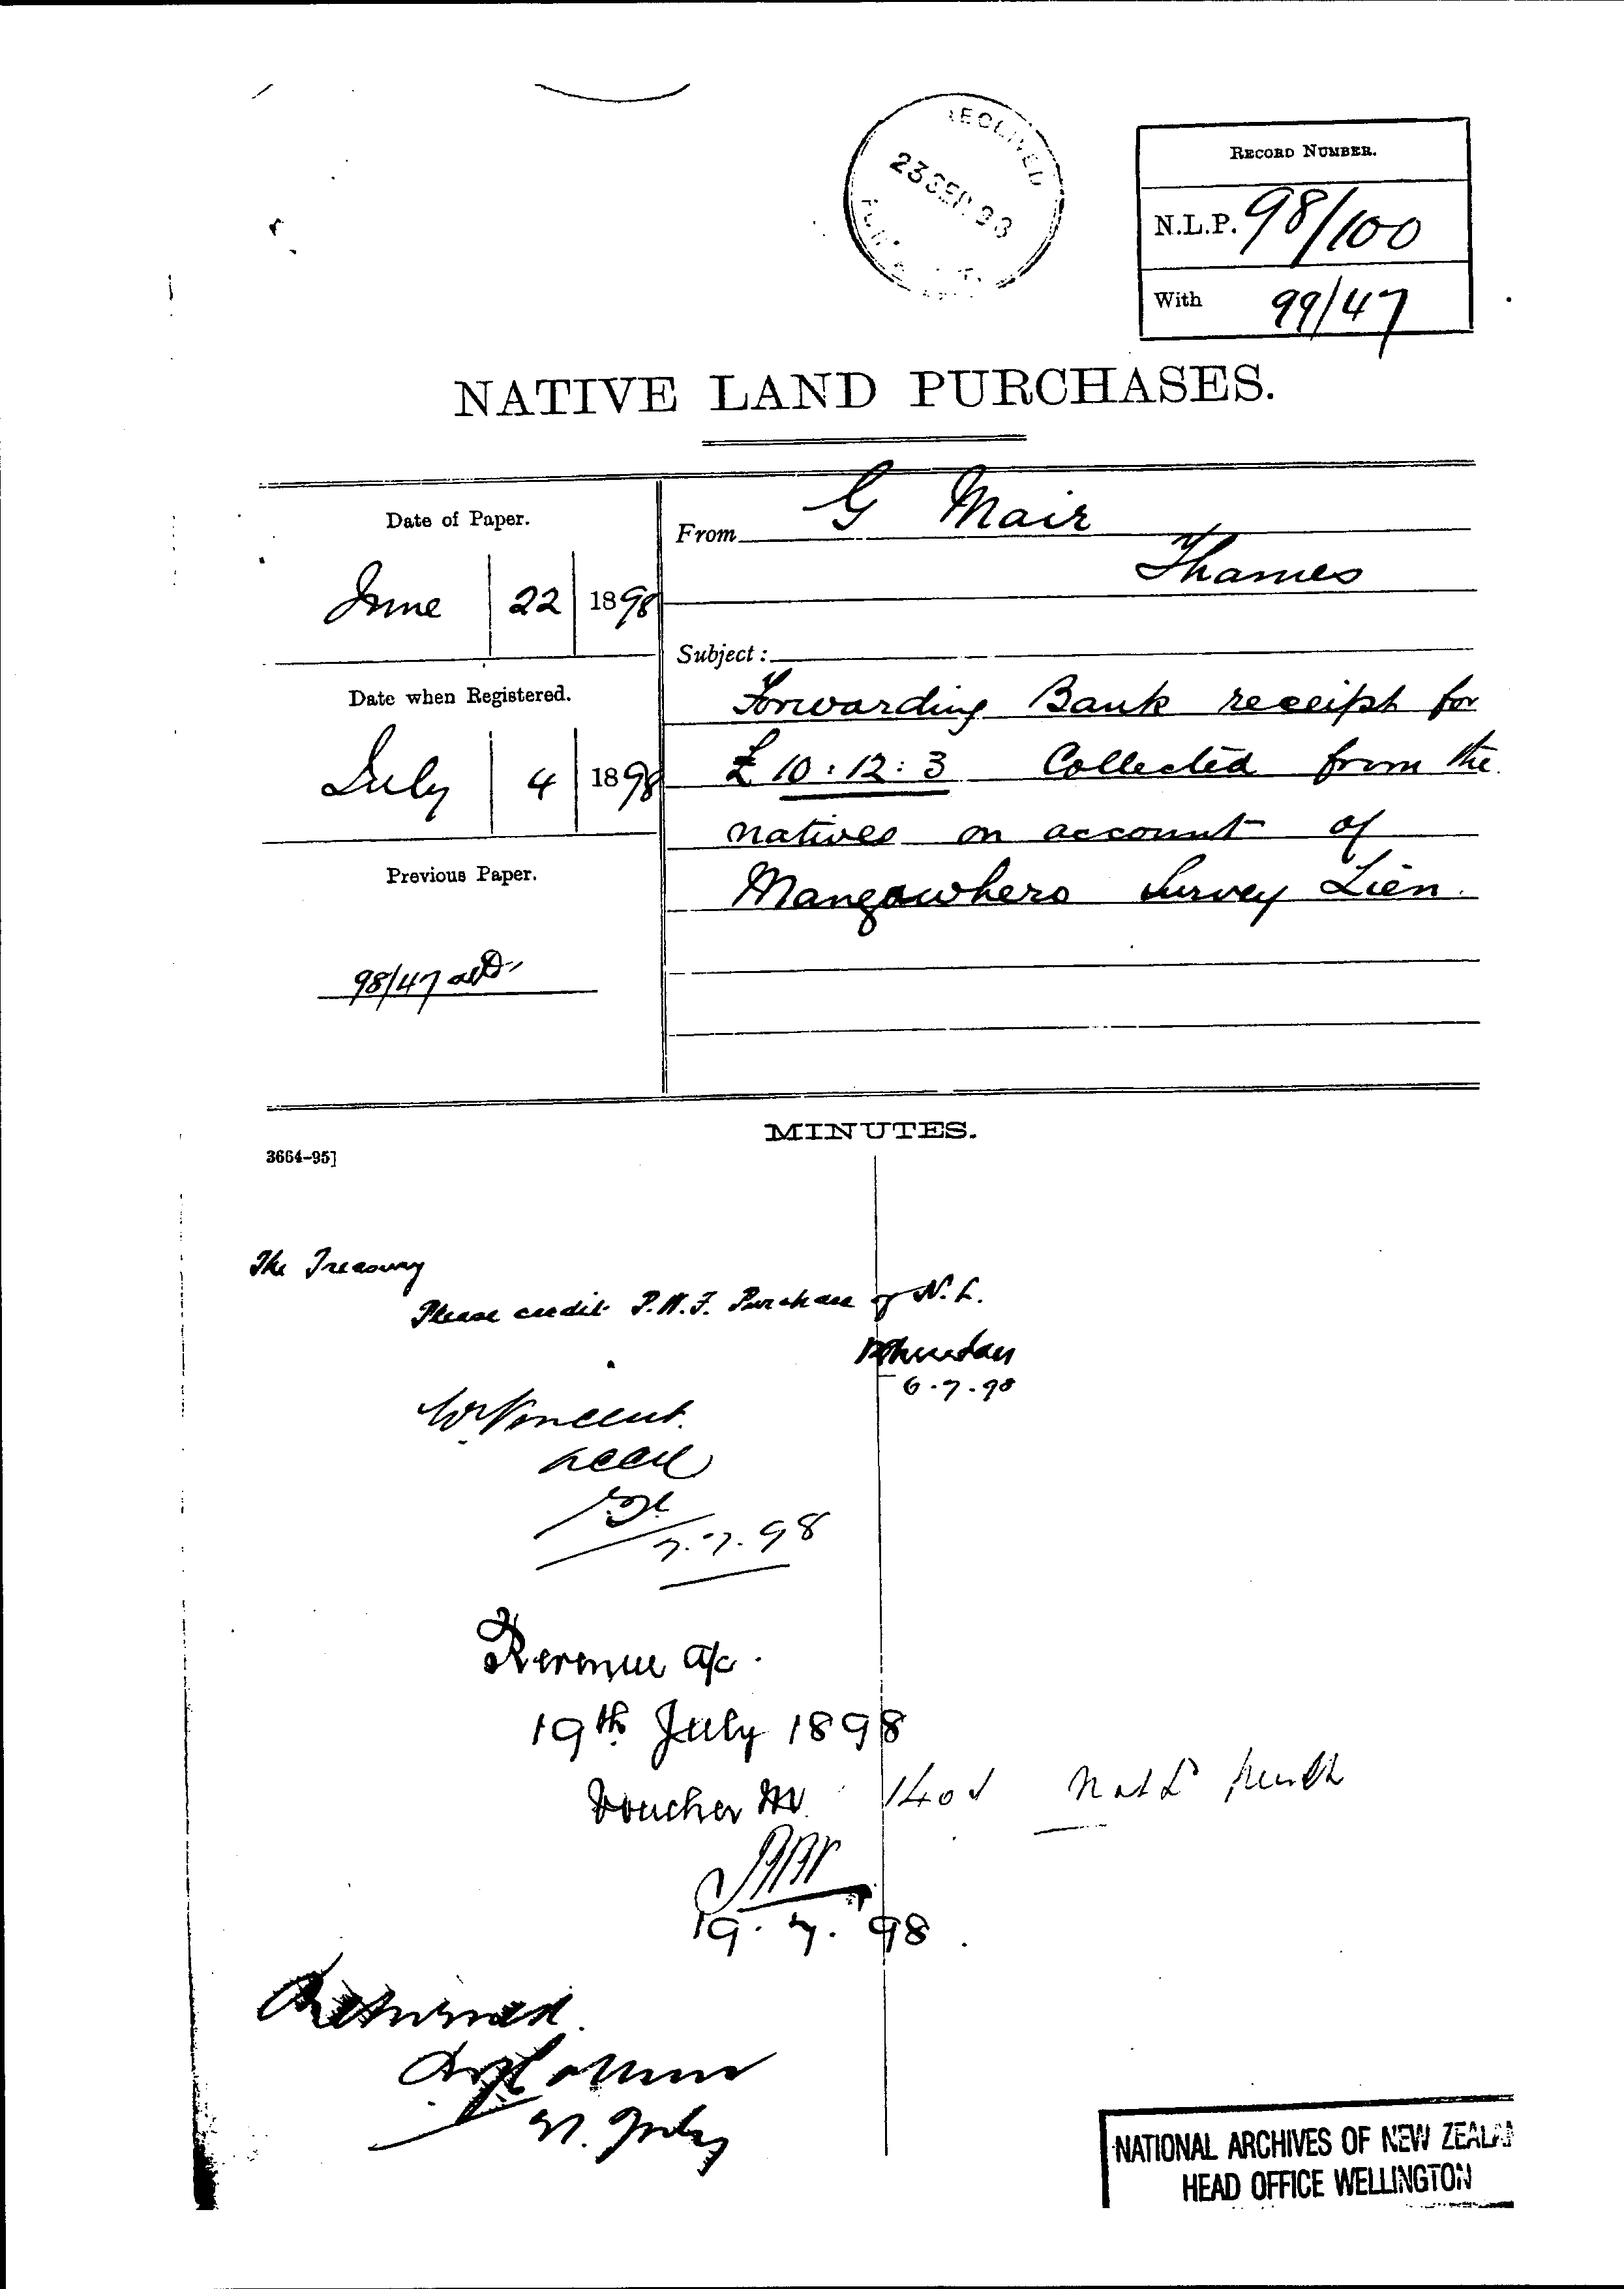 RECEIVED
23 SEP 98
RECORD NUMBER.
N.L.P. 98/100
With 99/47
NATIVE LAND PURCHASES.
Date of Paper.
June 22 1898
Date when Registered.
July 4 1898
Previous Paper.
98/47
From G Mair
Thames
Subject:
Forwarding Bank receipt for
£10:12:3 Collected from the
natives on account of
Mangawhero Survey Lien.
MINUTES.
3664-95]
The Treasury
Please credit P.W.F. Purchase of N.L.
6.7.98
Mr Vincent.
7.7.98
Revenue a/c.
19th July 1898
Voucher No
19.7.98.
Returned.
July
NATIONAL ARCHIVES OF NEW ZEALAN
HEAD OFFICE WELLINGTON